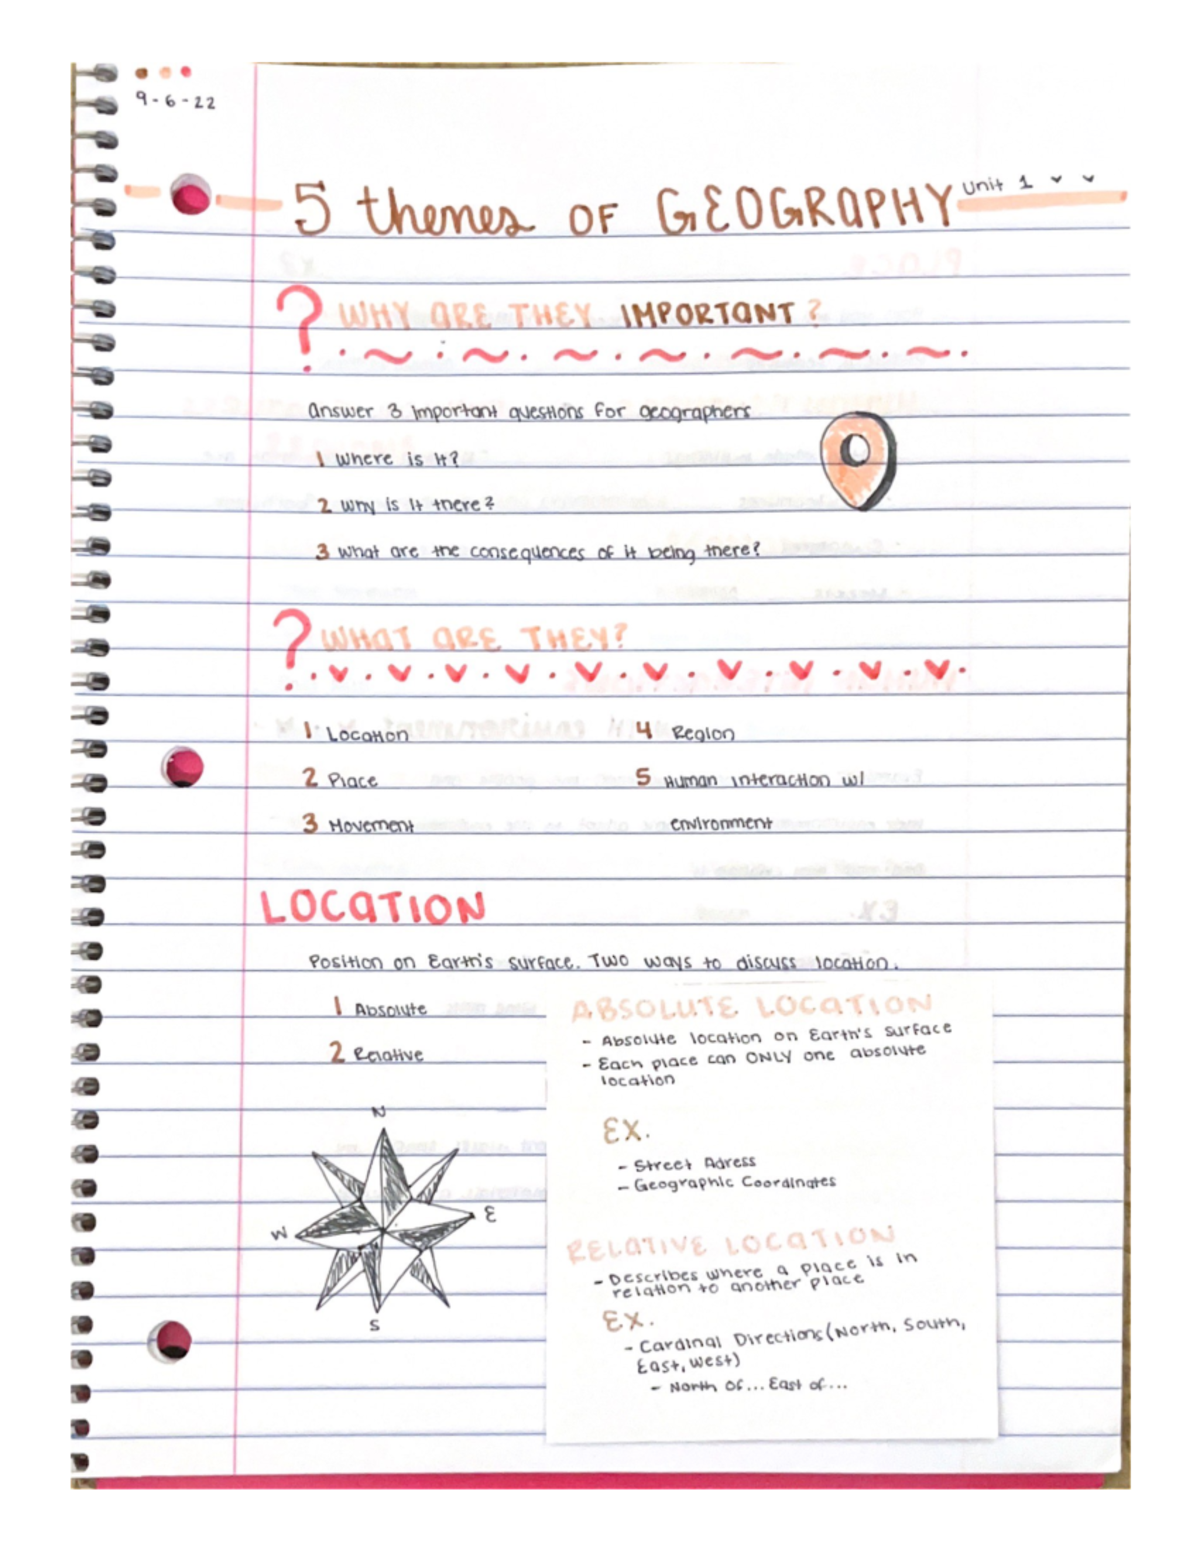 9-6-22
5 themes OF GEOGRAPHY Unit 1
? WHY ARE THEY IMPORTANT?
Answer 3 important questions for geographers
1 Where is it?
2 Why is it there?
3 What are the consequences of it being there?
? WHAT ARE THEY?
1 Location
2 Place
3 Movement
4 Region
5 Human interaction w/
environment
LOCATION
Position on Earth's surface. Two ways to discuss location.
1 Absolute
2 Relative
N
W
E
S
ABSOLUTE LOCATION
- Absolute location on Earth's surface
- Each place can ONLY one absolute
location
EX.
- Street Adress
- Geographic Coordinates
RELATIVE LOCATION
- Describes where a place is in
relation to another place
EX.
- Cardinal Directions (North, South,
East, West)
- North Of... East of...